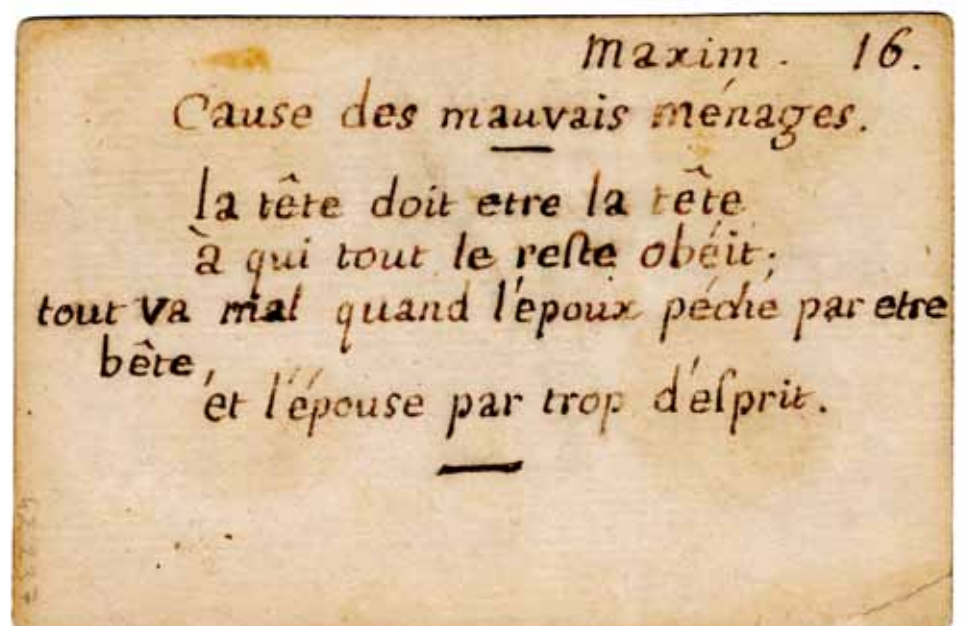 Maxim. 16.
Cause des mauvais ménages.
la tête doit etre la tête
à qui tout le reſte obéit;
tout va mal quand l'époux péche par etre
bête,
et l'épouse par trop d'eſprit.